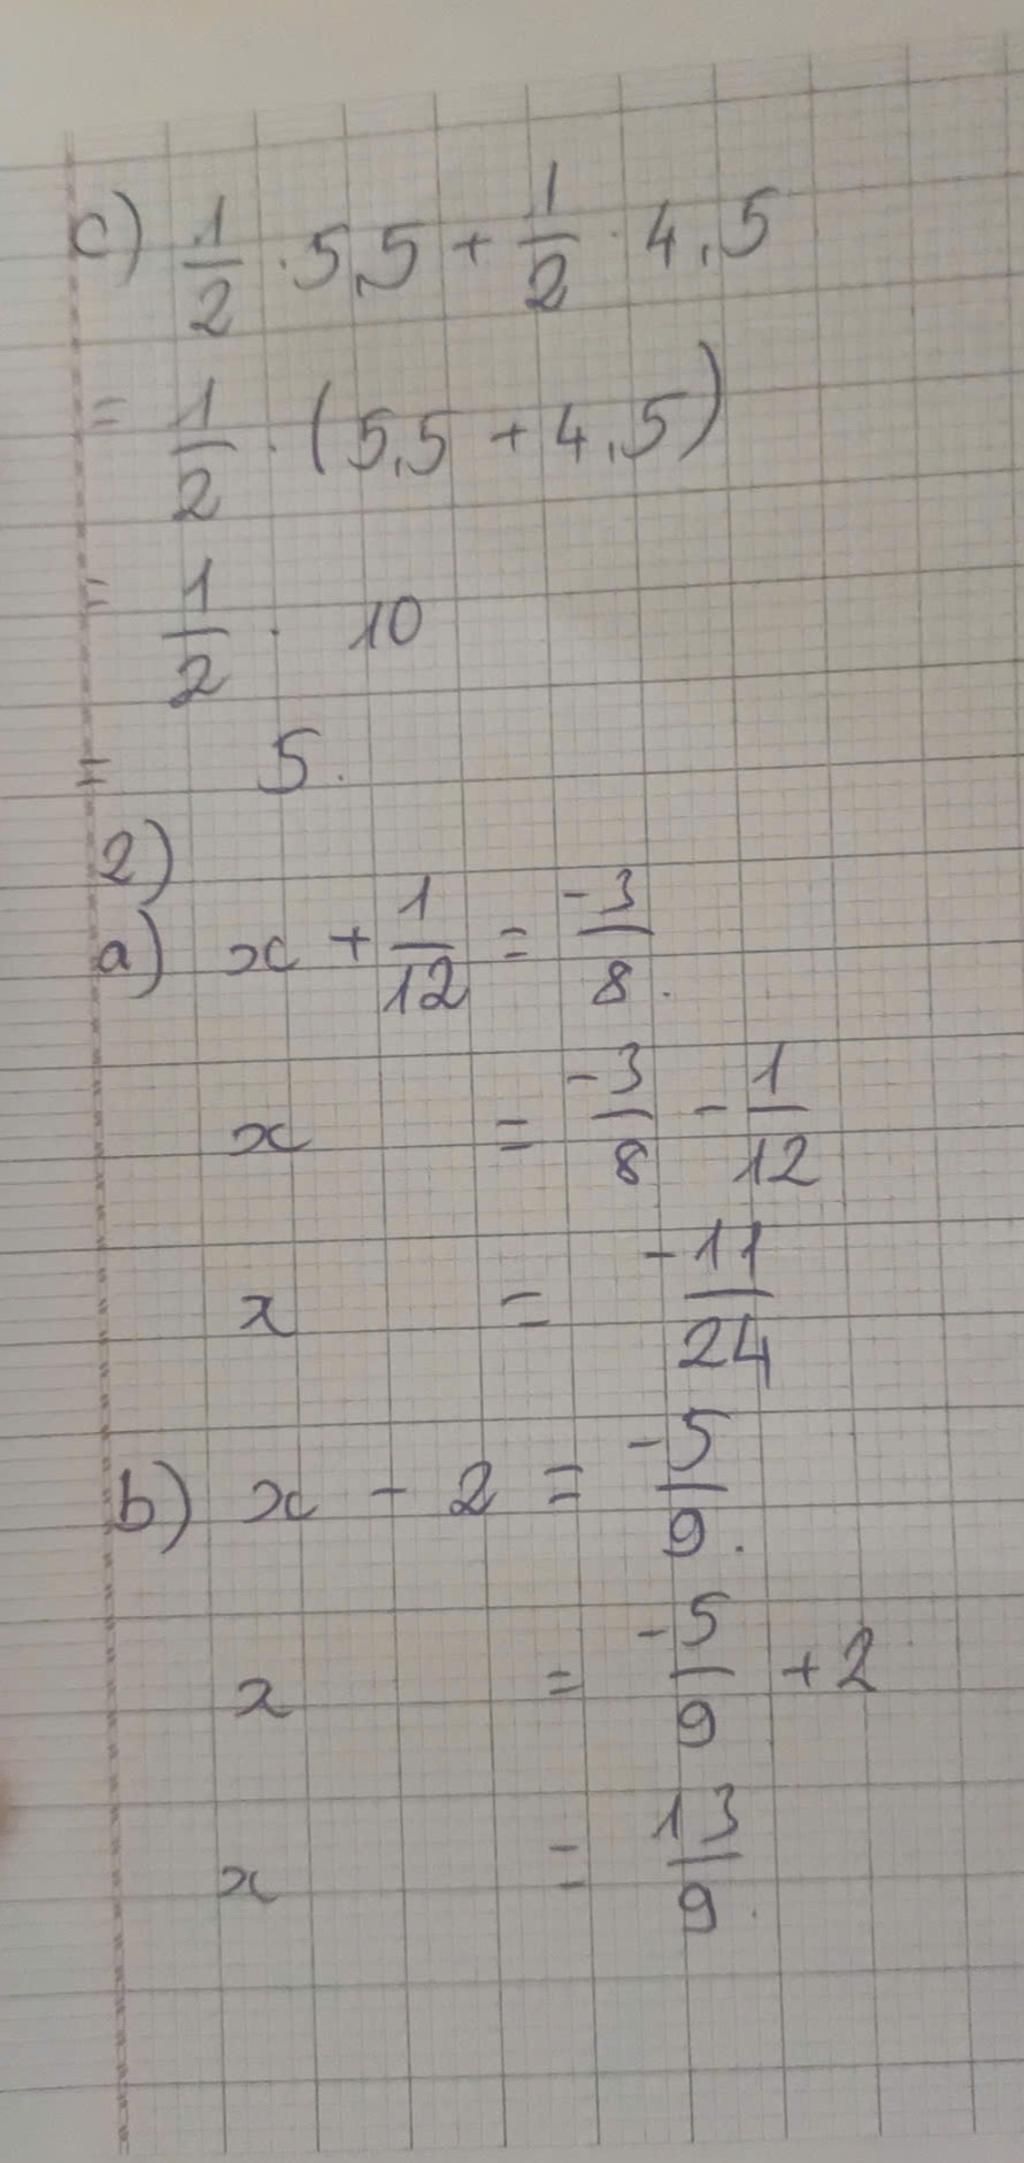 c) 1/2 . 5,5 + 1/2 . 4,5
= 1/2 . (5,5 + 4,5)
= 1/2 . 10
= 5.
2)
a) x + 1/12 = -3/8.
x = -3/8 - 1/12
x = -11/24
b) x - 2 = -5/9.
x = -5/9 + 2
x = 13/9.